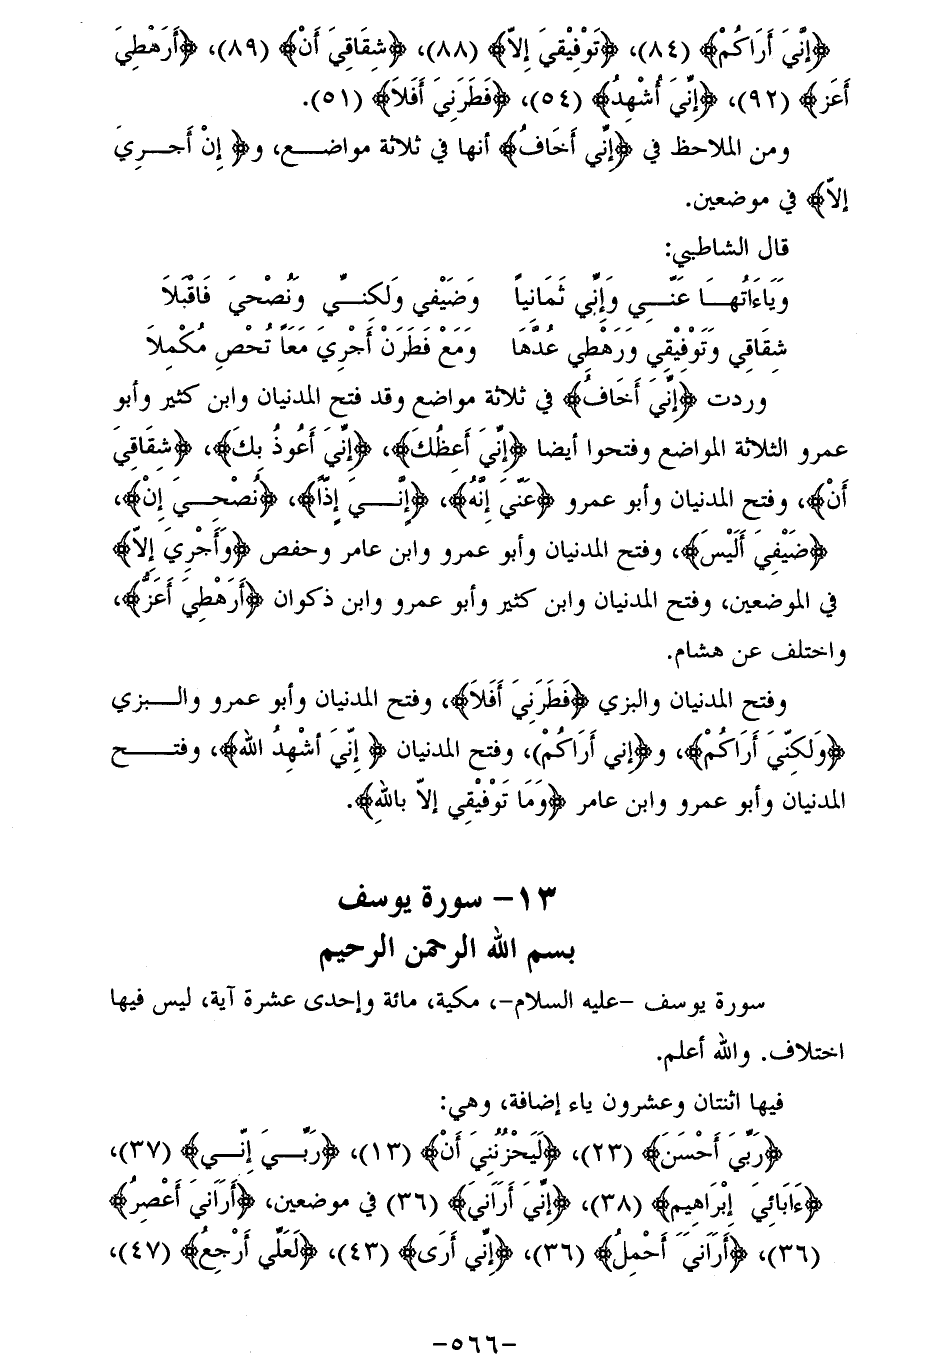 ﴿إِنِّيَ أَرَاكُمْ﴾ (٨٤)، ﴿تَوْفِيْقيَ إِلاّ﴾ (٨٨)، ﴿شِقَاقِيَ أَنْ﴾ (٨٩)، ﴿أَرَهْطِيَ
أَعَز﴾ (٩٢)، ﴿إنِّيَ أُشْهِدُ﴾ (٥٤)، ﴿فَطَرَنِيَ أَفَلاَ﴾ (٥١).
ومن الملاحظ في ﴿إنِّي أخَافُ﴾ أنها في ثلاثة مواضع، و﴿ إنْ أَجرِيَ
إلاّ﴾ في موضعين.
قال الشاطبي:
وَيَاءَاتُهَا عَنِّي وَإِنِّي ثَمَانِياً وَضَيْفي ولَكِنِّي وَنُصْحيَ فَاقْبَلاَ
شِقَاقِي وَتَوْفِيْقِي وَرَهْطِي عُدَّهَا وَمَعْ فَطَرَنْ أَجْرِيَ مَعَاً تُحْصِ مُكْمِلاَ
وردت ﴿إنِّيَ أَخَافُ﴾ في ثلاثة مواضع وقد فتح المدنيان وابن كثير وأبو
عمرو الثلاثة المواضع وفتحوا أيضا ﴿إنِّيَ أَعِظُكَ﴾، ﴿إنِّيَ أَعُوذُ بِكَ﴾، ﴿شِقَاقِيَ
أَنْ﴾، وفتح المدنيان وأبو عمرو ﴿عَنِّيَ إِنَّهُ﴾، ﴿إنِّيَ إِذّاً﴾، ﴿نُصْحِيَ إِنْ﴾،
﴿ضَيْفِيَ أَلَيْسَ﴾، وفتح المدنيان وأبو عمرو وابن عامر وحفص ﴿وَأَجْرِيَ إلاّ﴾
في الموضعين، وفتح المدنيان وابن كثير وأبو عمرو وابن ذكوان ﴿أَرَهْطِيَ أَعَزُّ﴾،
واختلف عن هشام.
وفتح المدنيان والبزي ﴿فَطَرَنِيَ أَفَلاَ﴾، وفتح المدنيان وأبو عمرو والبزي
﴿وَلَكِنِّيَ أَرَاكُمْ﴾، و﴿إني أَرَاكُمْ)، وفتح المدنيان ﴿ إنِّيَ أشْهِدُ الله﴾، وفتح
المدنيان وأبو عمرو وابن عامر ﴿وَمَا تَوْفِيْقِي إلاّ بالله﴾.
١٣- سورة يوسف
بسم الله الرحمن الرحيم
سورة يوسف -عليه السلام-، مكية، مائة وإحدى عشرة آية، ليس فيها
اختلاف. والله أعلم.
فيها اثنتان وعشرون ياء إضافة، وهي:
﴿رَبِّيَ أَحْسَنَ﴾ (٢٣)، ﴿لَيَحْزُنُنِيَ أَنْ﴾ (١٣)، ﴿رَبِّيَ إنِّي﴾ (٣٧)،
﴿ءَابَائِيَ إِبْرَاهِيم﴾ (٣٨)، ﴿إنِّيَ أَرَانِيَ﴾ (٣٦) في موضعين، ﴿أَرَانِيَ أَعْصِرُ﴾
(٣٦)، ﴿أَرَانِيَ أَحْمِلُ﴾ (٣٦)، ﴿إنِّي أَرَى﴾ (٤٣)، ﴿لَعَلِّي أَرْجِعُ﴾ (٤٧)،
-٥٦٦-